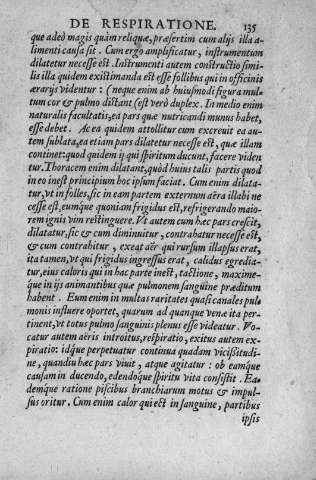 DE RESPIRATIONE. 135
que adeò magis quàm reliquæ, præsertim cum alijs illa a-
limenti causa sit. Cum ergo amplificatur, instrumentum
dilatetur necesse est. Instrumenti autem constructio simi-
lis illa quidem existimanda est esse follibus qui in officinis
ærarijs videntur: (neque enim ab huiusmodi figura mul-
tum cor & pulmo distant (est verò duplex. In medio enim
naturalis facultatis, ea pars quæ nutricandi munus habet,
esse debet. Ac ea quidem attollitur cum excreuit ea au-
tem sublata, ea etiam pars dilatetur necesse est, quæ illam
continet: quod quidem ij qui spiritum ducunt, facere viden
tur. Thoracem enim dilatant, quòd huius talis partis quod
in eo inest principium hoc ipsum faciat. Cum enim dilata-
tur, vt in folles, sic in eam partem externum aëra illabi ne
cesse est, eumque quoniam frigidus est, refrigerando maio-
rem ignis vim restinguere. Vt autem cum hæc pars crescit,
dilatatur, sic & cum diminuitur, contrahatur necesse est,
& cum contrahitur, exeat aër qui rursum illapsus erat,
ita tamen, vt qui frigidus ingressus erat, calidus egredia-
tur, eius caloris qui in hac parte inest, tactione, maxime-
que in ijs animantibus quæ pulmonem sanguine præditum
habent. Eum enim in multas raritates quasi canales pul-
monis influere oportet, quarum ad quanque venæ ita per-
tinent, vt totus pulmo sanguinis plenus esse videatur. Vo-
catur autem aëris introitus, respiratio, exitus autem ex-
piratio: idque perpetuatur continua quadam vicißitudi-
ne, quandiu hæc pars viuit, atque agitatur: ob eamque
causam in ducendo, edendoque spiritu vita consistit. Ea-
demque ratione piscibus branchiarum motus & impul-
sus oritur. Cum enim calor qui est in sanguine, partibus
ipsis